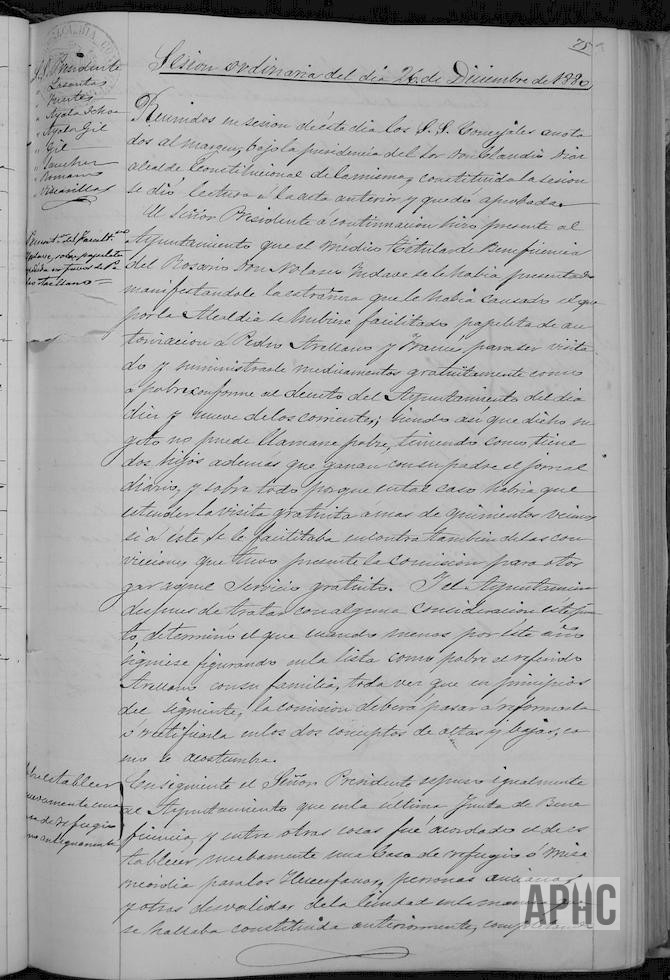 75
Sesion ordinaria del dia 26 de Diciembre de 1880
S.S. Presidente
" Lasanta
" Fuertes
" Ayala
" Ayala Gil
" Gil
" Sanchez
" Romano
Reunidos en sesion de éste dia los S.S. Concejales anota
dos al margen, bajo la presidencia del Sor Don Claudio Diaz
alcalde Constitucional de la misma, y constituida la sesion
se dió lectura á la acta anterior y quedó aprobada.
El Señor Presidente á continuacion hizo presente al
Ayuntamiento que el Médico Titular de Beneficencia
del Rosario Don Nolasco se le habia presentado
manifestandole la estrañeza que le habia causado el que
por la Alcaldia se hubiere facilitado papeleta de au
torizacion á Pedro Arellano y Francés, para ser visita
do y suministrarle medicamentos gratuitamente como
á pobre conforme al decreto del Ayuntamiento del dia
diez y nueve de los corrientes; siendo así que dicho su
geto no puede llamarse pobre, teniendo como tiene
dos hijos además que ganan con su padre el jornal
diario, y sobre todo porque en tal caso habria que
estender la visita gratuita a mas de quinientos vecinos
si á éste se le facilitaba en contra tambien de las con
vicciones que tuvo presente la comision para otor
gar aquel servicio gratuito. Y el Ayuntamien
despues de tratar con alguna consideracion este pun
to, determinó el que cuando menos por éste año
siguiese figurando en la lista como pobre el referido
Arellano con su familia, toda vez que en principios
del siguiente, la comision deberá pasar á reformarla
ó rectificarla en los dos conceptos de altas y bajas, co
mo se acostumbra.
establecer
nuevamente una
de refugio
antiguamente
En seguiente el Señor Presidente espuso igualmente
al Ayuntamiento que en la ultima Junta de Bene
ficencia, y entre otras cosas fué acordado el de es
tablecer nuebamente una Casa de refugio ó Mise
ricordia para los Huerfanos, personas ancianas
y otras desvalidas de la Ciudad en la manera que
se hallaba constituida anteriormente,
APHC